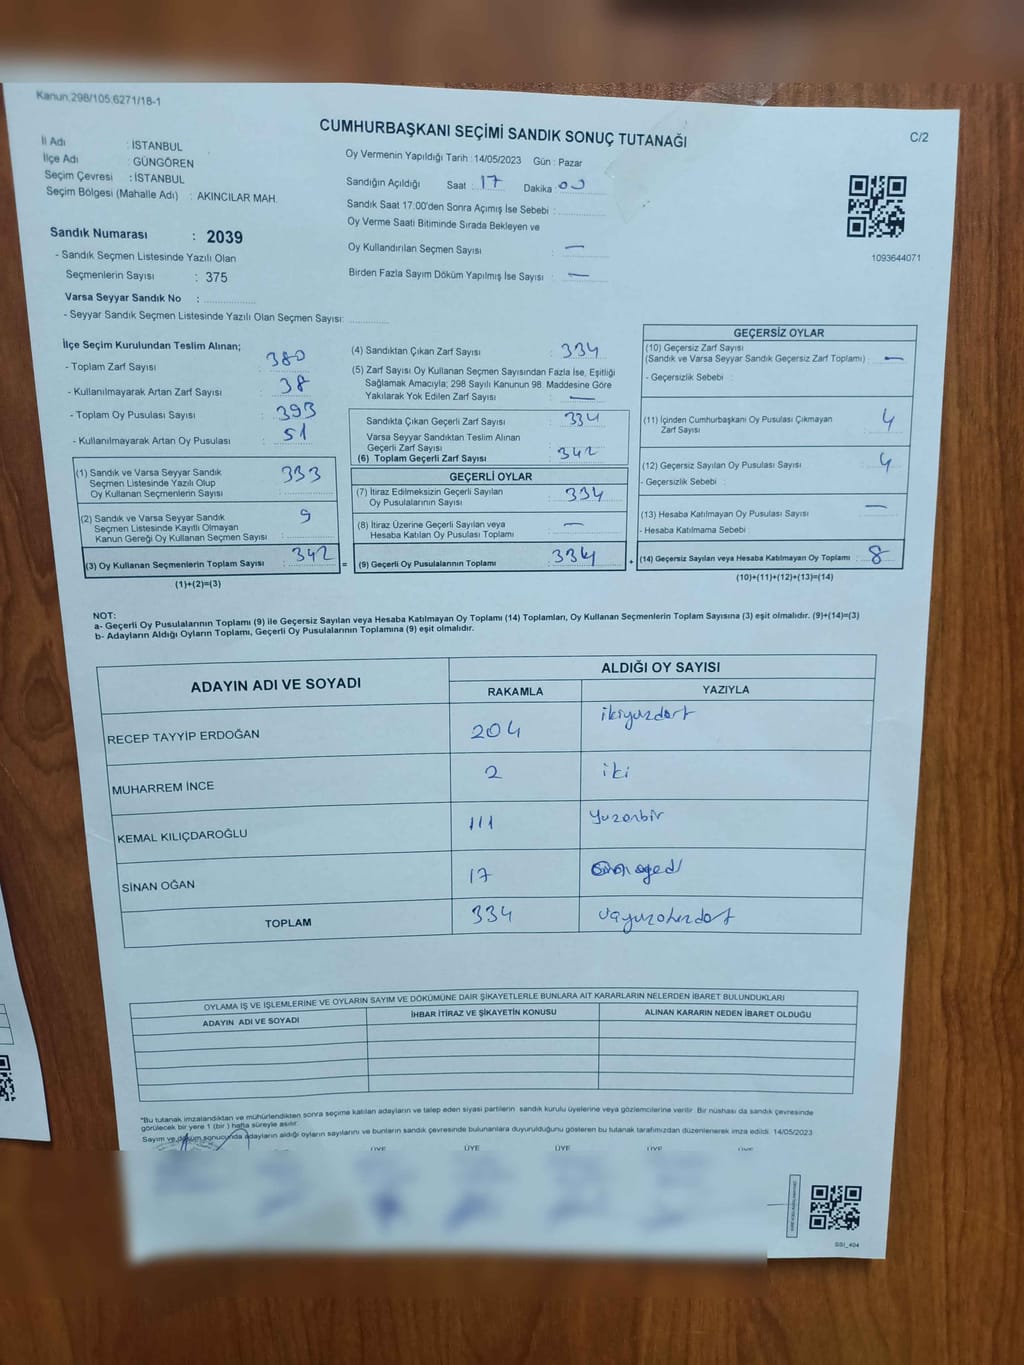 Kanun:298/105;6271/18-1
C/2
CUMHURBAŞKANI SEÇİMİ SANDIK SONUÇ TUTANAĞI
İl Adı : İSTANBUL
İlçe Adı : GÜNGÖREN
Seçim Çevresi : İSTANBUL
Seçim Bölgesi (Mahalle Adı) : AKINCILAR MAH.
Sandık Numarası : 2039
- Sandık Seçmen Listesinde Yazılı Olan
Seçmenlerin Sayısı : 375
Varsa Seyyar Sandık No :
- Seyyar Sandık Seçmen Listesinde Yazılı Olan Seçmen Sayısı:
Oy Vermenin Yapıldığı Tarih : 14/05/2023 Gün : Pazar
Sandığın Açıldığı Saat 17 Dakika 00
Sandık Saat 17.00'den Sonra Açımış İse Sebebi :
Oy Verme Saati Bitiminde Sırada Bekleyen ve
Oy Kullandırılan Seçmen Sayısı : —
Birden Fazla Sayım Döküm Yapılmış İse Sayısı : —
1093644071
İlçe Seçim Kurulundan Teslim Alınan;
- Toplam Zarf Sayısı : 380
- Kullanılmayarak Artan Zarf Sayısı : 38
- Toplam Oy Pusulası Sayısı : 393
- Kullanılmayarak Artan Oy Pusulası : 51
(1) Sandık ve Varsa Seyyar Sandık
Seçmen Listesinde Yazılı Olup
Oy Kullanan Seçmenlerin Sayısı : 333
(2) Sandık ve Varsa Seyyar Sandık
Seçmen Listesinde Kayıtlı Olmayan
Kanun Gereği Oy Kullanan Seçmen Sayısı : 9
(3) Oy Kullanan Seçmenlerin Toplam Sayısı : 342
(1)+(2)=(3)
(4) Sandıktan Çıkan Zarf Sayısı : 334
(5) Zarf Sayısı Oy Kullanan Seçmen Sayısından Fazla İse, Eşitliği
Sağlamak Amacıyla; 298 Sayılı Kanunun 98. Maddesine Göre
Yakılarak Yok Edilen Zarf Sayısı : —
Sandıkta Çıkan Geçerli Zarf Sayısı : 334
Varsa Seyyar Sandıktan Teslim Alınan
Geçerli Zarf Sayısı :
(6) Toplam Geçerli Zarf Sayısı : 342
GEÇERLİ OYLAR
(7) İtiraz Edilmeksizin Geçerli Sayılan
Oy Pusulasının Sayısı : 334
(8) İtiraz Üzerine Geçerli Sayılan veya
Hesaba Katılan Oy Pusulası Toplamı : —
= (9) Geçerli Oy Pusulalarının Toplamı : 334
GEÇERSİZ OYLAR
(10) Geçersiz Zarf Sayısı
(Sandık ve Varsa Seyyar Sandık Geçersiz Zarf Toplamı) : —
- Geçersizlik Sebebi :
(11) İçinden Cumhurbaşkanı Oy Pusulası Çıkmayan
Zarf Sayısı : 4
(12) Geçersiz Sayılan Oy Pusulası Sayısı : 4
- Geçersizlik Sebebi :
(13) Hesaba Katılmayan Oy Pusulası Sayısı : —
- Hesaba Katılmama Sebebi :
+ (14) Geçersiz Sayılan veya Hesaba Katılmayan Oy Toplamı : 8
(10)+(11)+(12)+(13)=(14)
NOT:
a- Geçerli Oy Pusulalarının Toplamı (9) ile Geçersiz Sayılan veya Hesaba Katılmayan Oy Toplamı (14) Toplamları, Oy Kullanan Seçmenlerin Toplam Sayısına (3) eşit olmalıdır. (9)+(14)=(3)
b- Adayların Aldığı Oyların Toplamı, Geçerli Oy Pusulalarının Toplamına (9) eşit olmalıdır.
ADAYIN ADI VE SOYADI
ALDIĞI OY SAYISI
RAKAMLA YAZIYLA
RECEP TAYYİP ERDOĞAN 204 ikiyuzdört
MUHARREM İNCE 2 iki
KEMAL KILIÇDAROĞLU 111 yuzonbir
SİNAN OĞAN 17 onyedi
TOPLAM 334 üçyuzotuzdört
OYLAMA İŞ VE İŞLEMLERİNE VE OYLARIN SAYIM VE DÖKÜMÜNE DAİR ŞİKAYETLERLE BUNLARA AİT KARARLARIN NELERDEN İBARET BULUNDUKLARI
ADAYIN ADI VE SOYADI İHBAR İTİRAZ VE ŞİKAYETİN KONUSU ALINAN KARARIN NEDEN İBARET OLDUĞU
*Bu tutanak imzalandıktan ve mühürlendikten sonra seçime katılan adayların ve talep eden siyasi partilerin sandık kurulu üyelerine veya gözlemcilerine verilir. Bir nüshası da sandık çevresinde
görülecek bir yere 1 (bir ) hafta süreyle asılır.
Sayım ve döküm sonucunda adayların aldığı oyların sayılarını ve bunların sandık çevresinde bulunanlara duyurulduğunu gösteren bu tutanak tarafımızdan düzenlenerek imza edildi. 14/05/2023
ÜYE ÜYE ÜYE ÜYE ÜYE
SSI_404